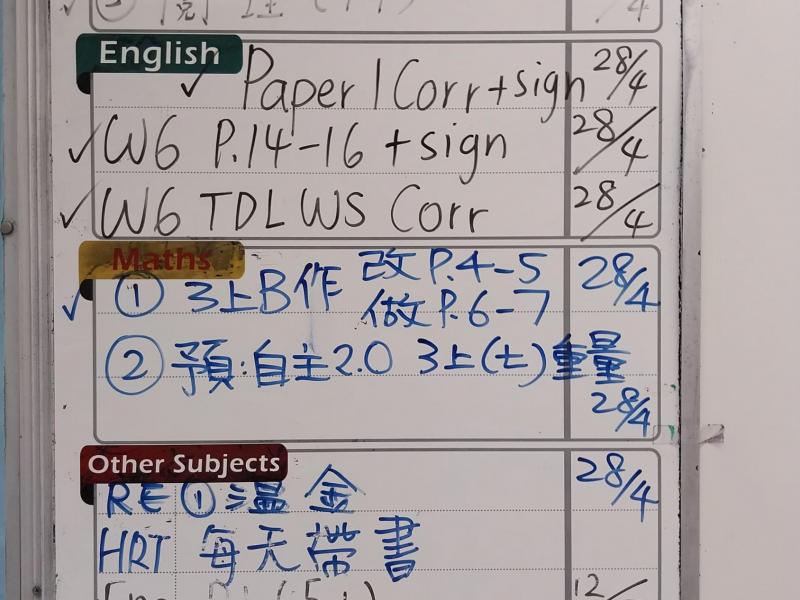 English
✓ Paper 1 Corr + sign 28/4
✓ W6 P.14-16 + sign 28/4
✓ W6 TDL WS Corr 28/4
Maths
✓ ① 3上B作 改P.4-5 28/4
做P.6-7
② 預:自主2.0 3上(七)重量
28/4
Other Subjects
RE ① 溫金 28/4
HRT 每天帶書
12/